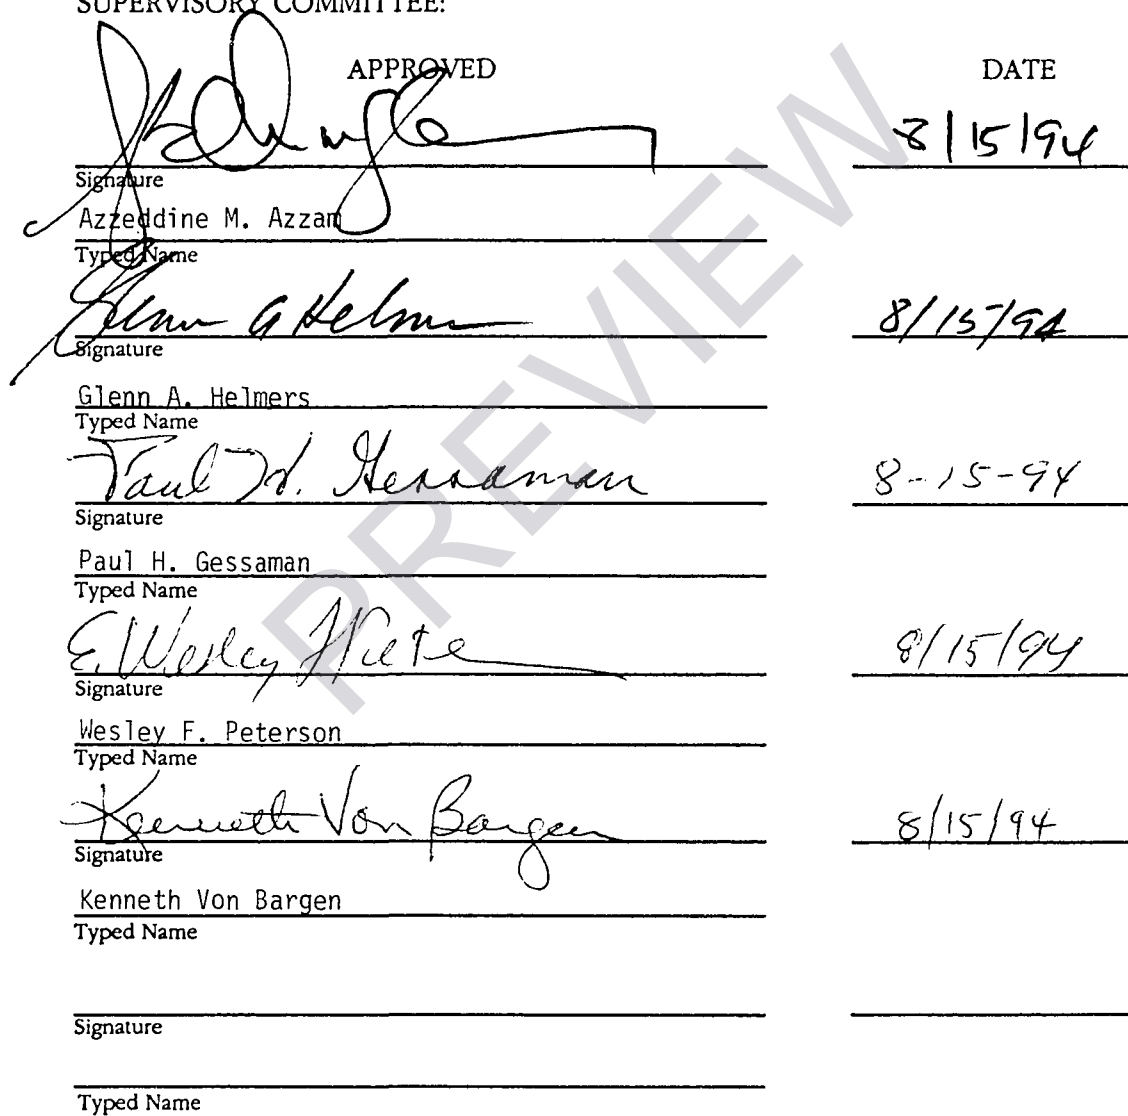 SUPERVISORY COMMITTEE:
APPROVED DATE
8/15/94
Signature
Azzeddine M. Azzam
Typed Name
Glenn A Helmers 8/15/94
Signature
Glenn A. Helmers
Typed Name
Paul H. Gessaman 8-15-94
Signature
Paul H. Gessaman
Typed Name
E. Wesley 8/15/94
Signature
Wesley F. Peterson
Typed Name
Kenneth Von Bargen 8/15/94
Signature
Kenneth Von Bargen
Typed Name
Signature
Typed Name
PREVIEW